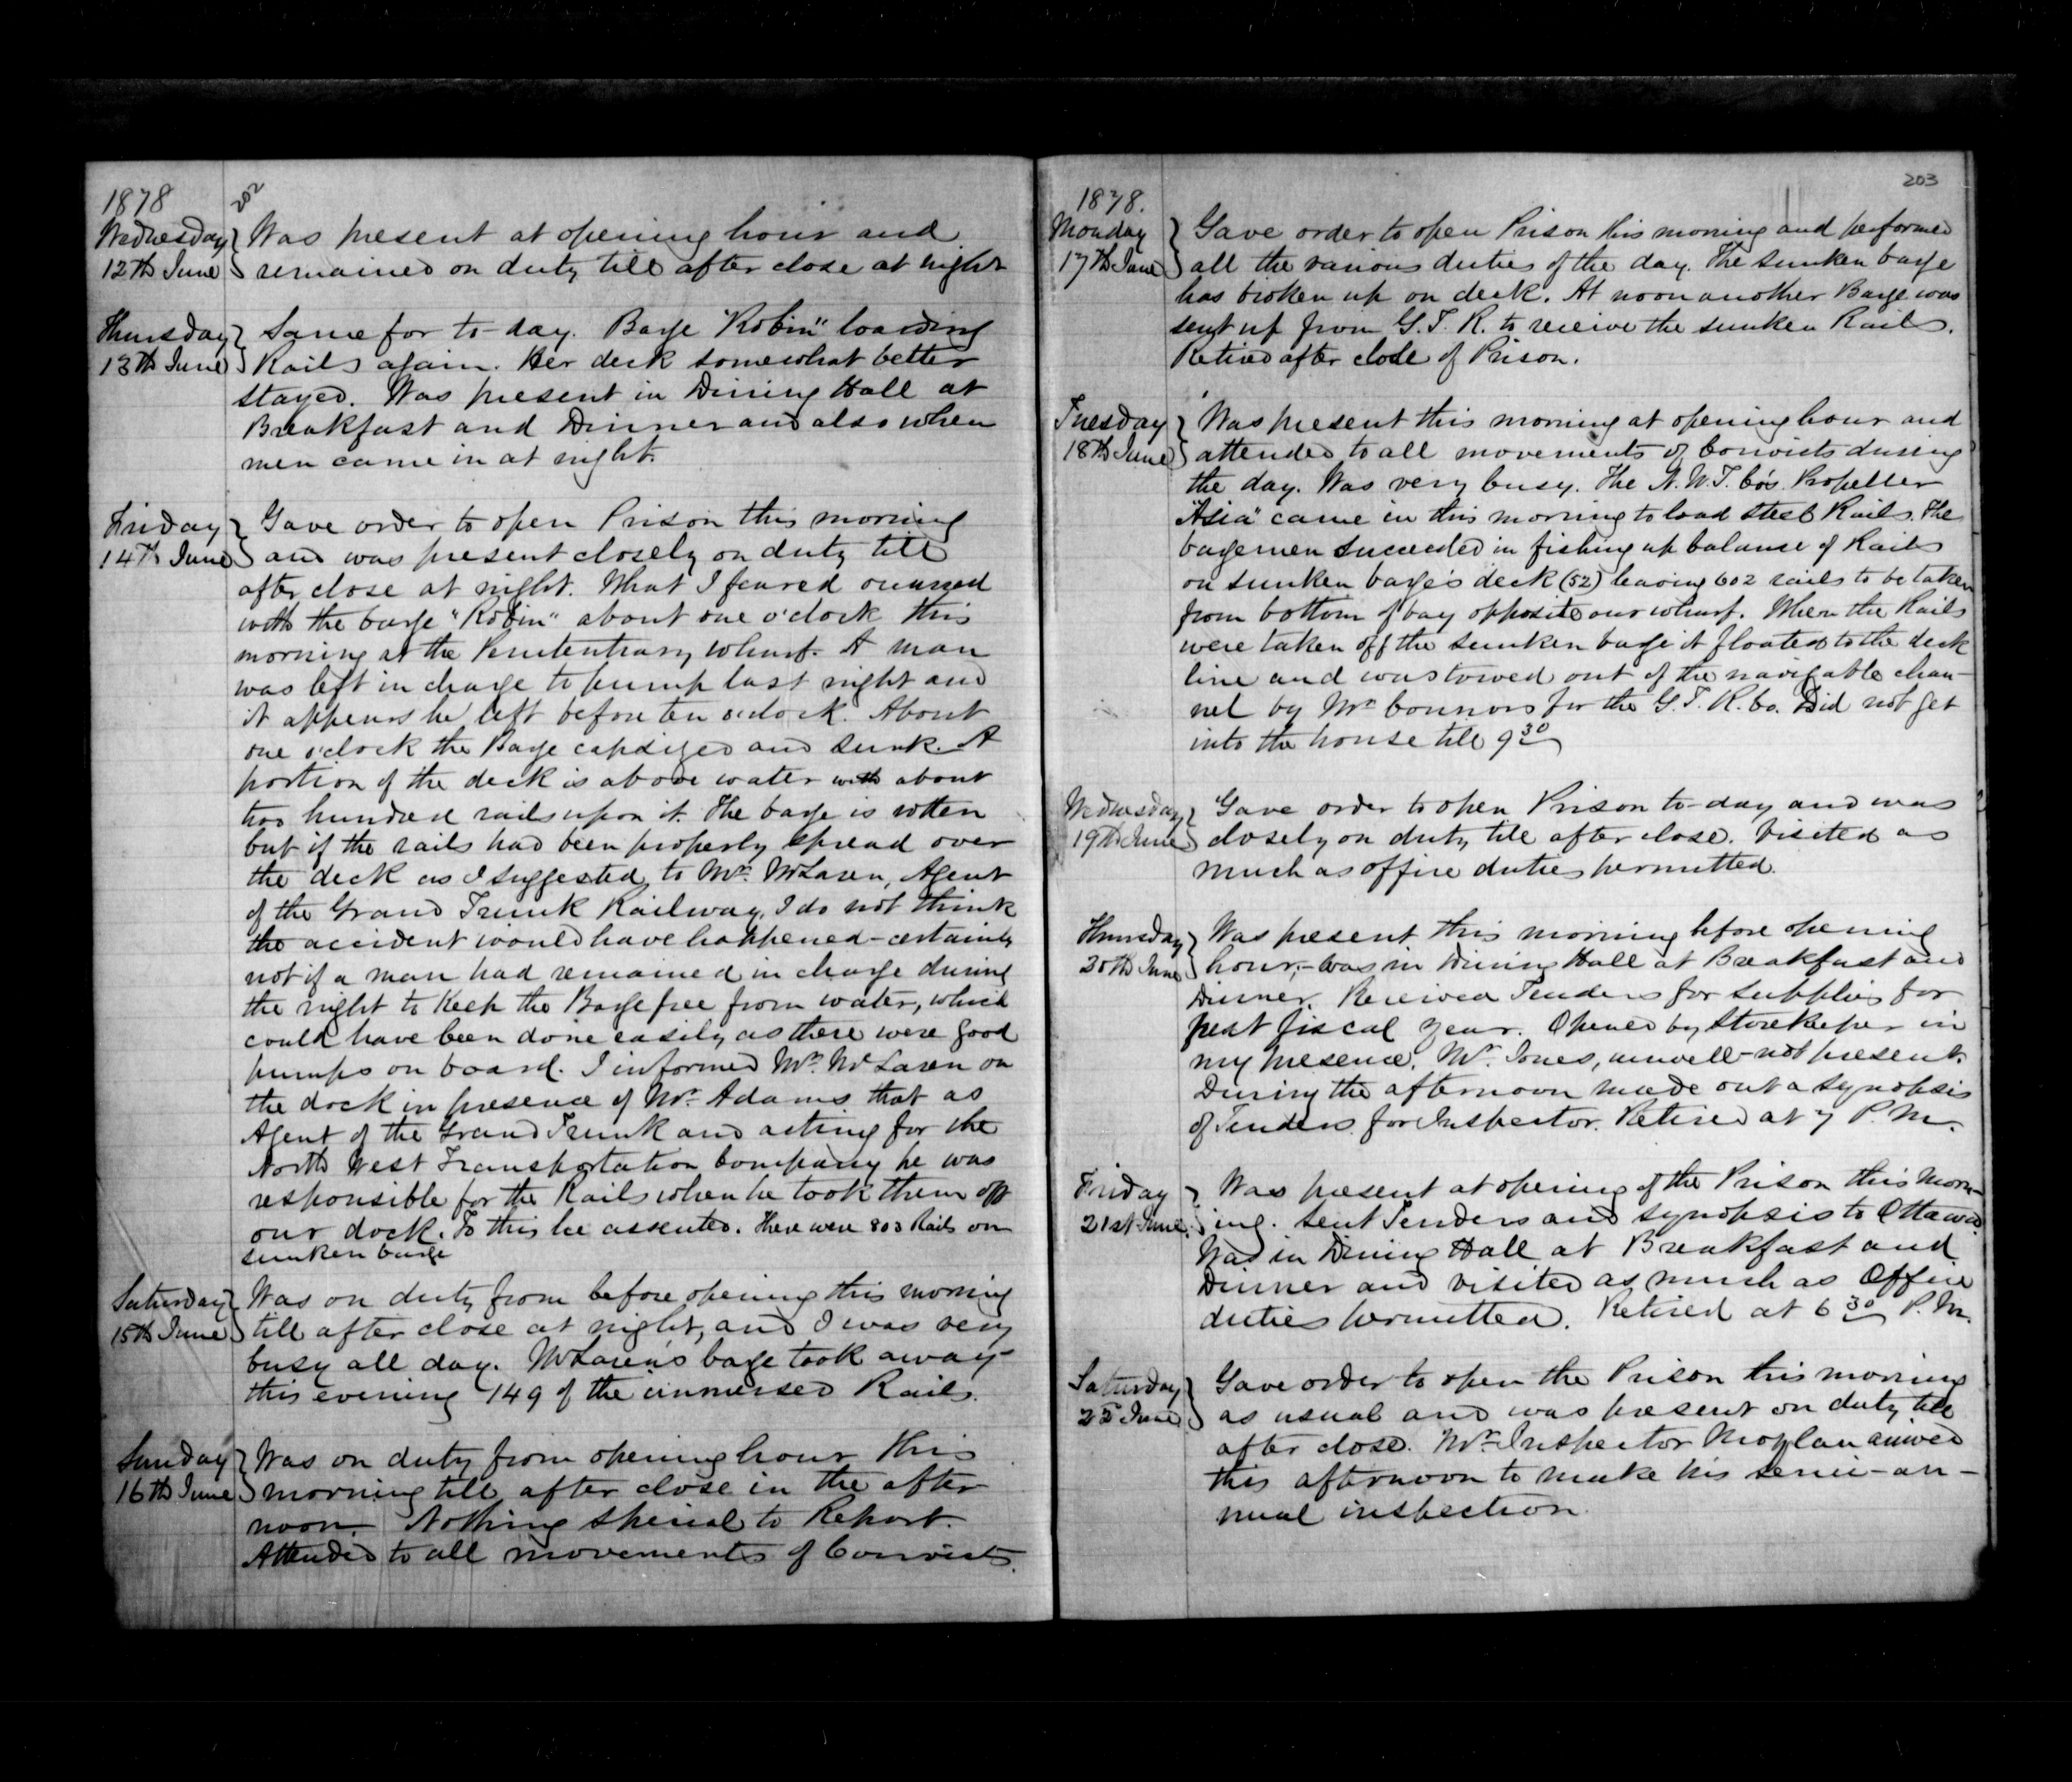 1878
202
Wednesday } Was present at opening hour and
12th June } remained on duty till after close at night
Thursday } Same for to-day. Barge "Robin" loading
13th June } Rails again. Her deck somewhat better
stayed. Was present in Dining Hall at
Breakfast and Dinner and also when
men came in at night.
Friday } Gave order to open Prison this morning
14th June } and was present closely on duty till
after close at night. What I feared occurred
with the barge "Robin" about one o'clock this
morning at the Penitentiary wharf. A man
was left in charge to pump last night and
it appears he left before ten o'clock. About
one o'clock the Barge capsized and sunk. A
portion of the deck is above water with about
two hundred rails upon it. The barge is rotten
but if the rails had been properly spread over
the deck as I suggested to Mr. McLaren, Agent
of the Grand Trunk Railway, I do not think
the accident would have happened - certainly
not if a man had remained in charge during
the night to keep the Barge free from water, which
could have been done easily as there were good
pumps on board. I informed Mr. McLaren on
the dock in presence of Mr. Adams that as
Agent of the Grand Trunk and acting for the
North West Transportation Company he was
responsible for the Rails when he took them off
our dock. To this he assented. There were 803 Rails on
sunken barge
Saturday } Was on duty from before opening this morning
15th June } till after close at night, and I was very
busy all day. McLaren's barge took away
this evening 149 of the immersed Rails.
Sunday } Was on duty from opening hour this
16th June } morning till after close in the after
noon. Nothing special to Report.
Attended to all movements of Convicts.
203
1878.
Monday } Gave order to open Prison this morning and performed
17th June } all the various duties of the day. The sunken barge
has broken up on deck. At noon another Barge was
sent up from G. T. R. to receive the sunken Rails.
Retired after close of Prison.
Tuesday } Was present this morning at opening hour and
18th June } attended to all movements of Convicts during
the day. Was very busy. The N. W. T. Co's. Propeller
"Asia" came in this morning to load steel Rails. The
bargemen succeeded in fishing up balance of Rails
on sunken barge's deck (52) leaving 602 rails to be taken
from bottom of bay opposite our wharf. When the Rails
were taken off the sunken barge it floated to the deck
line and was towed out of the navigable chan-
nel by Mr. Connors for the G. T. R. Co. Did not get
into the house till 9 30
Wednesday } Gave order to open Prison to-day and was
19th June } closely on duty till after close. Visited as
much as office duties permitted.
Thursday } Was present this morning before opening
20th June } hour, - was in Dining Hall at Breakfast and
Dinner. Received Tenders for supplies for
next fiscal year. Opened by Storekeeper in
my presence. Mr. Jones, unwell - not present.
During the afternoon made out a synopsis
of Tenders for Inspector. Retired at 7 P. M.
Friday } Was present at opening of the Prison this morn-
21st June } ing. Sent Tenders and synopsis to Ottawa
Was in Dining Hall at Breakfast and
Dinner and visited as much as Office
duties permitted. Retired at 6 30 P. M.
Saturday } Gave order to open the Prison this morning
June } as usual and was present on duty till
after close. Mr. Inspector Moylan arrived
this afternoon to make his semi-an-
nual inspection.